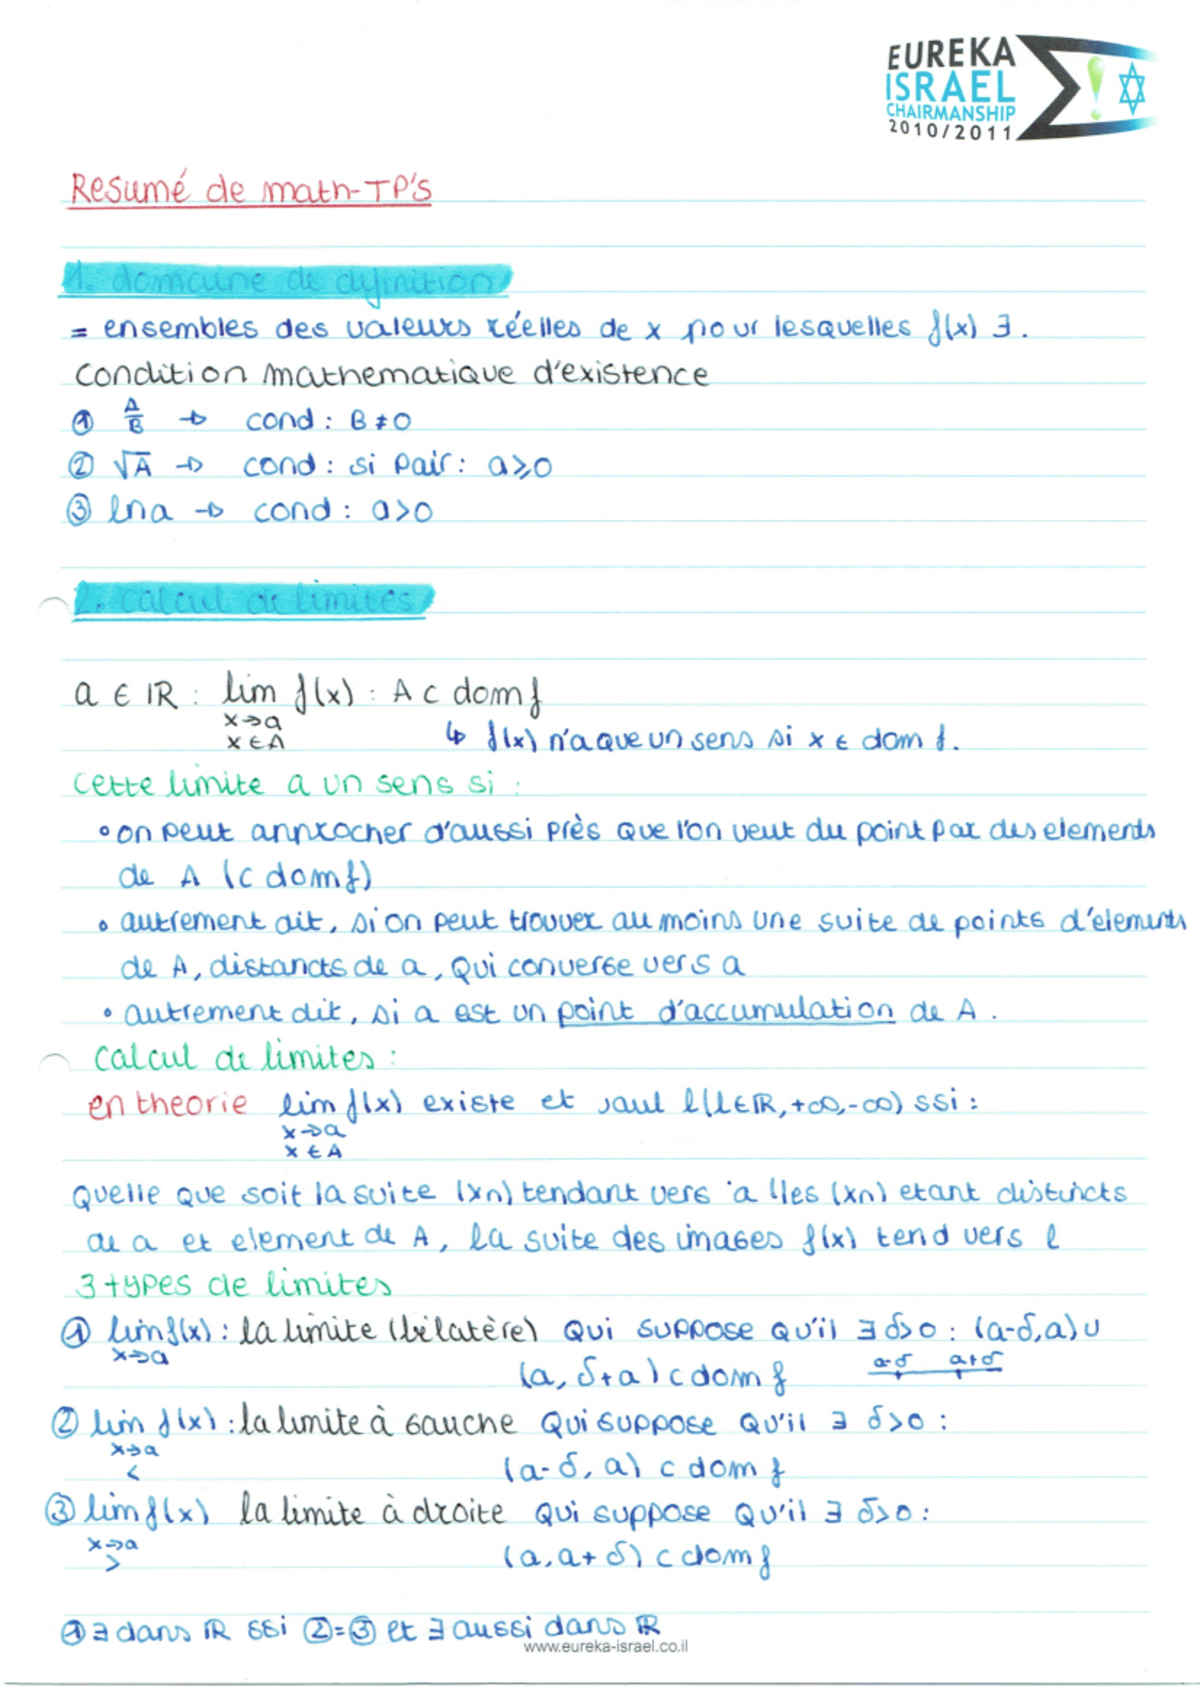 EUREKA
ISRAEL
CHAIRMANSHIP
2010/2011
Resumé de math-TP's
1. domaine de definition
= ensembles des valeurs réelles de x pour lesquelles f(x) ∃.
Condition mathematique d'existence
① A/B → cond: B ≠ 0
② √A → cond: si pair: a ⩾ 0
③ ln a → cond: a > 0
2. calcul de limites
a ∈ ℝ : lim f(x) : A ⊂ dom f
x→a
x ∈ A ↳ f(x) n'a que un sens si x ∈ dom f.
Cette limite a un sens si :
• on peut approcher d'aussi près que l'on veut du point par des elements
de A (⊂ dom f)
• autrement dit, si on peut trouver au moins une suite de points d'elements
de A, distancts de a, qui converge vers a
• autrement dit, si a est un point d'accumulation de A.
Calcul de limites :
en theorie lim f(x) existe et vaut l (l ∈ ℝ, +∞, -∞) ssi :
x→a
x ∈ A
Quelle que soit la suite (xn) tendant vers a (les (xn) etant distincts
de a et element de A, la suite des images f(x) tend vers l
3 types de limites
① lim f(x) : la limite (bilatère) qui suppose qu'il ∃ δ>0 : (a-δ, a) ∪
x→a a-δ a+δ
(a, δ+a) ⊂ dom f
② lim f(x) : la limite à gauche qui suppose qu'il ∃ δ>0 :
x→a
< (a-δ, a) ⊂ dom f
③ lim f(x) la limite à droite qui suppose qu'il ∃ δ>0 :
x→a
> (a, a+δ) ⊂ dom f
① ∃ dans ℝ ssi ②=③ et ∃ aussi dans ℝ
www.eureka-israel.co.il